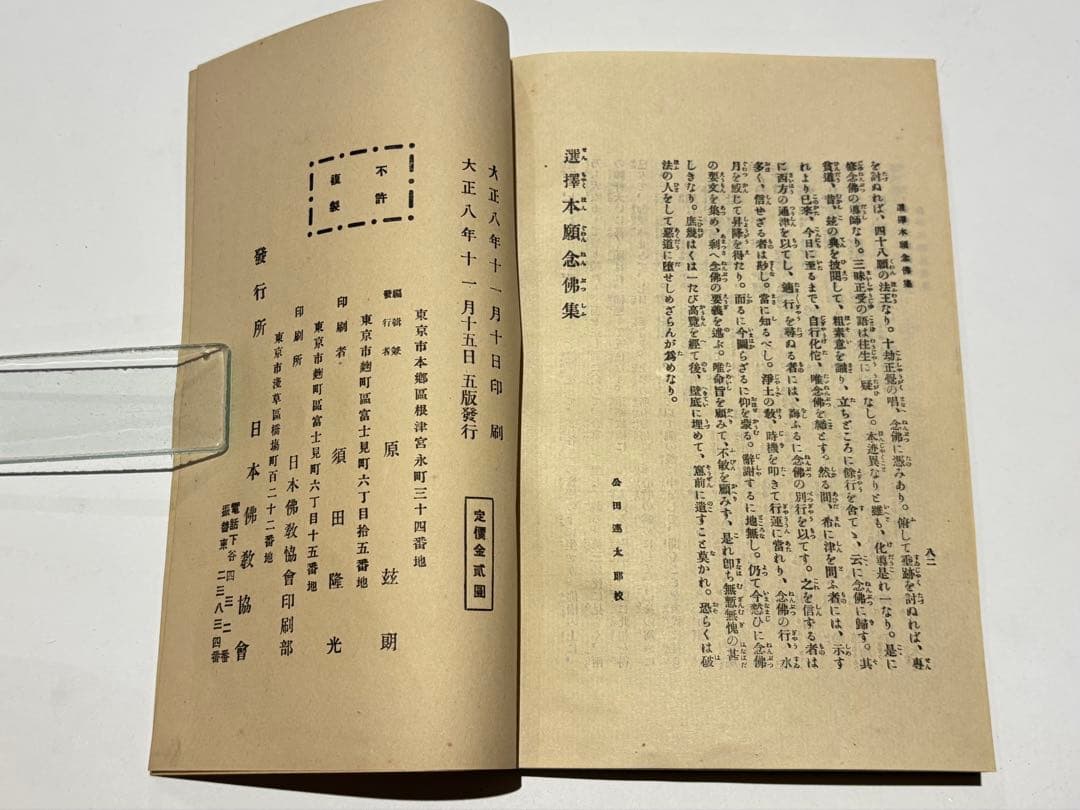 選擇本願念佛集
八二
を討ぬれば、四十八願の法王なり。十劫正覺の唱、念佛に憑みあり。俯して垂跡を討ぬれば、專
修念佛の導師なり。三昧正受の語は往生に疑なし。本迹異なりと雖も、化導是れ一なり。是に
貧道、昔、玆の典を披閲して、粗素意を識り、立ちどころに餘行を舍て、云に念佛に歸す。其
れより已來、今日に至るまで、自行化佗、唯念佛を縡とす。然る間、希に津を問ふ者には、示す
に西方の通津を以てし、適行を尋ぬる者には、誨ふるに念佛の別行を以てす。之を信ずる者は
多く、信せざる者は尠し。當に知るべし。淨土の敎、時機を叩きて行運に當れり、念佛の行、水
月を感じて昇降を得たり。而るに今圖らざるに仰を蒙る。辭謝に地無し。仍て今憖ひに念佛
の要文を集め、剩へ念佛の要義を述ぶ。唯命旨を顧みて、不敏を顧みず、是れ卽ち無慙無愧の甚
しきなり。庶幾はくは一たび高覽を經て後、壁底に埋めて、窻前に遺すこと莫かれ。恐らくは破
法の人をして惡道に墮せしめざらんが爲めなり。
公田連太郎校
選擇本願念佛集
大正八年十一月十日印刷
大正八年十一月十五日五版發行
定價金貳圓
不許
複製
東京市本鄕區根津宮永町三十四番地
編輯兼
發行者 原玆朗
東京市麹町區富士見町六丁目拾五番地
印刷者 須田隆光
東京市麹町區富士見町六丁目十五番地
印刷所 日本佛敎協會印刷部
東京市淺草區橋場町百二十二番地
發行所 日本佛敎協會
電話下谷四三二番
振替東二三八三四番